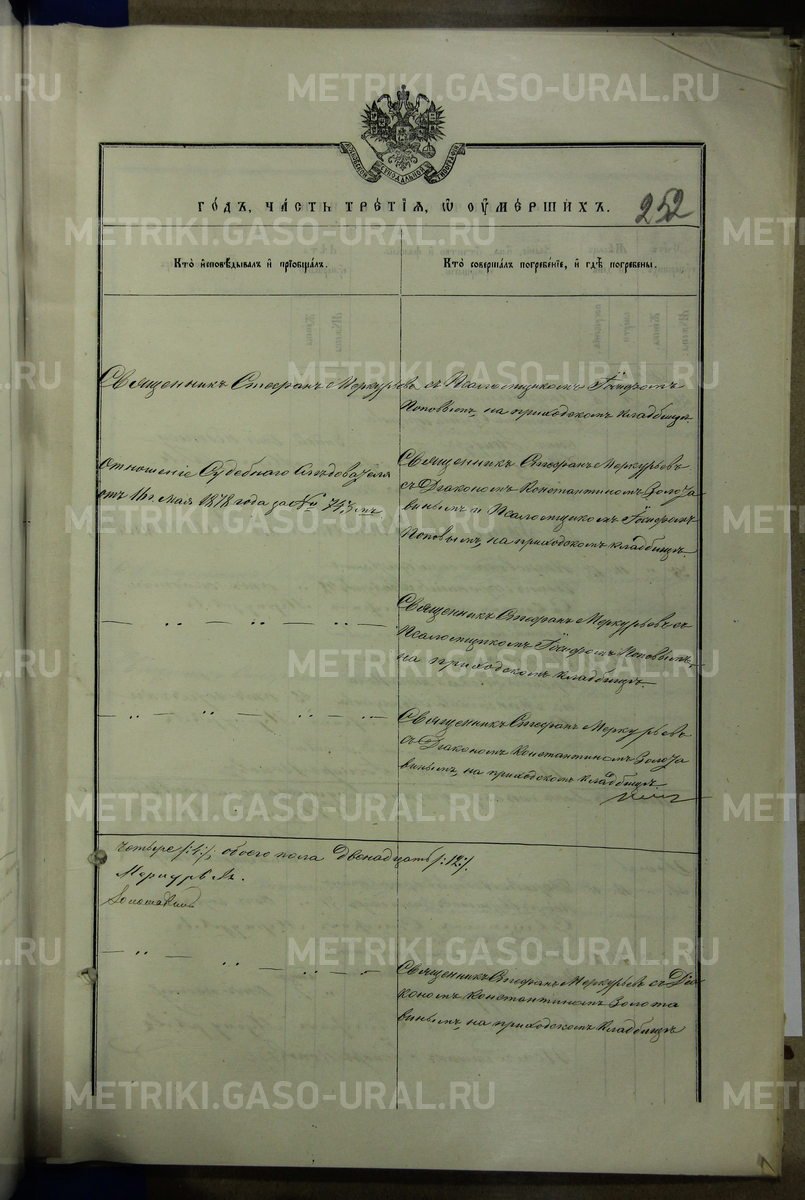 METRIKI.GASO-URAL.RU
252
МОСКОВСКОЙ СѴНОДАЛЬНОЙ ТИПОГРАФІИ
ГОДЪ, ЧАСТЬ ТРЕТІЯ, Ѡ ОУМЕРШИХЪ.
Кто исповѣдывалъ и пріобщалъ.
Кто совершалъ погребеніе, и гдѣ погребены.
Священникъ Стефанъ Меркурьевъ съ Псаломщикомъ Іосифомъ
Поповымъ, на приходскомъ кладбищѣ.
Отношеніе Судебнаго Слѣдователя
отъ 16го мая 1878 года за № 743мъ
Священникъ Стефанъ Меркурьевъ
съ Діакономъ Константиномъ Золота
винымъ и Псаломщикомъ Іосифомъ
Поповымъ, на приходскомъ кладбищѣ.
— „ — „ — „ — —
Священникъ Стефанъ Меркурьевъ съ
Псаломщикомъ Іосифомъ Поповымъ,
на приходскомъ кладбищѣ.
— „ — „ — „ — —
Священникъ Стефанъ Меркурьевъ
съ Діакономъ Константиномъ Золота
винымъ, на приходскомъ кладбищѣ.
четыре /:4:/, обоего пола двенадцать /:12:/.
Меркурьевъ.
Золотавинъ
— „ — „ — „ — —
Священникъ Стефанъ Меркурьевъ съ Діа
кономъ Константиномъ Золота
винымъ, на приходскомъ кладбищѣ